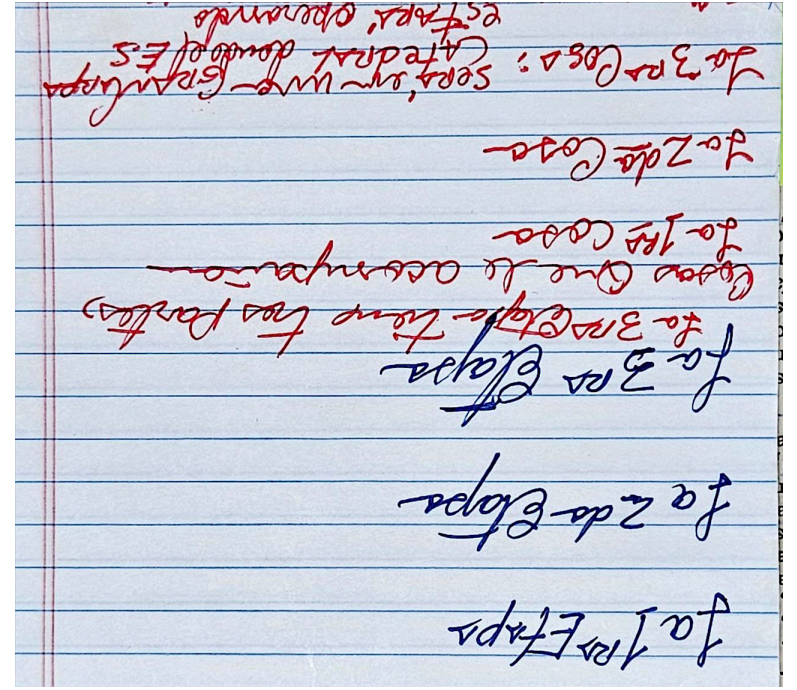 La 1ra Etapa
La 2da Etapa
La 3ra Etapa
La 3ra Etapa tiene tres Partes,
Cosas Que le acompaña
La 1ra Cosa
La 2da Cosa
La 3ra Cosa: Será en una Gran Carpa
CATEDRAL donde el E.S
ESTARÁ operando